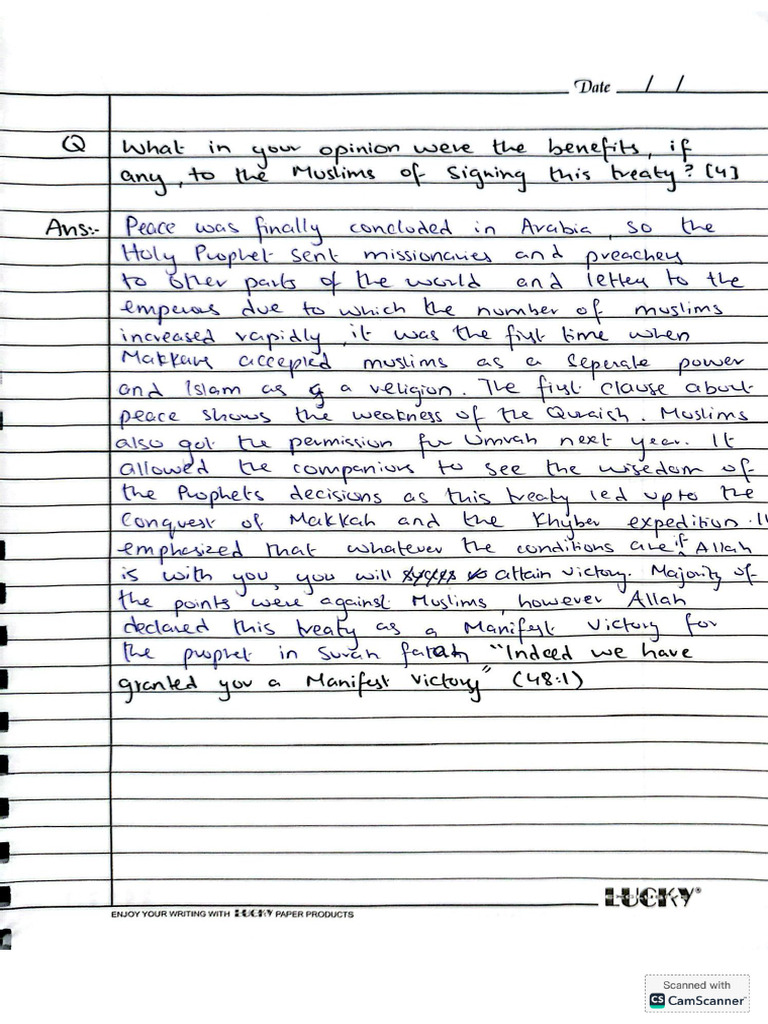 Date / /
Q What in your opinion were the benefits, if
any, to the Muslims of signing this treaty? [4]
Ans:- Peace was finally concluded in Arabia, so the
Holy Prophet sent missionaries and preachers
to other parts of the world and letters to the
emperors due to which the number of muslims
increased rapidly, it was the first time when
Makkans accepted muslims as a seperate power
and Islam as a religion. The first clause about
peace shows the weakness of the Quraish. Muslims
also got the permission for Umrah next year. It
allowed the companions to see the wisedom of
the Prophets decisions as this treaty led upto the
Conquest of Makkah and the Khyber expedition. It
emphasized that whatever the conditions are if Allah
is with you, you will attain victory. Majority of
the points were against Muslims, however Allah
declared this treaty as a Manifest Victory for
the prophet in Surah fatah "Indeed we have
granted you a Manifest victory" (48:1)
LUCKY®
ENJOY YOUR WRITING WITH LUCKY PAPER PRODUCTS
Scanned with
CS CamScanner